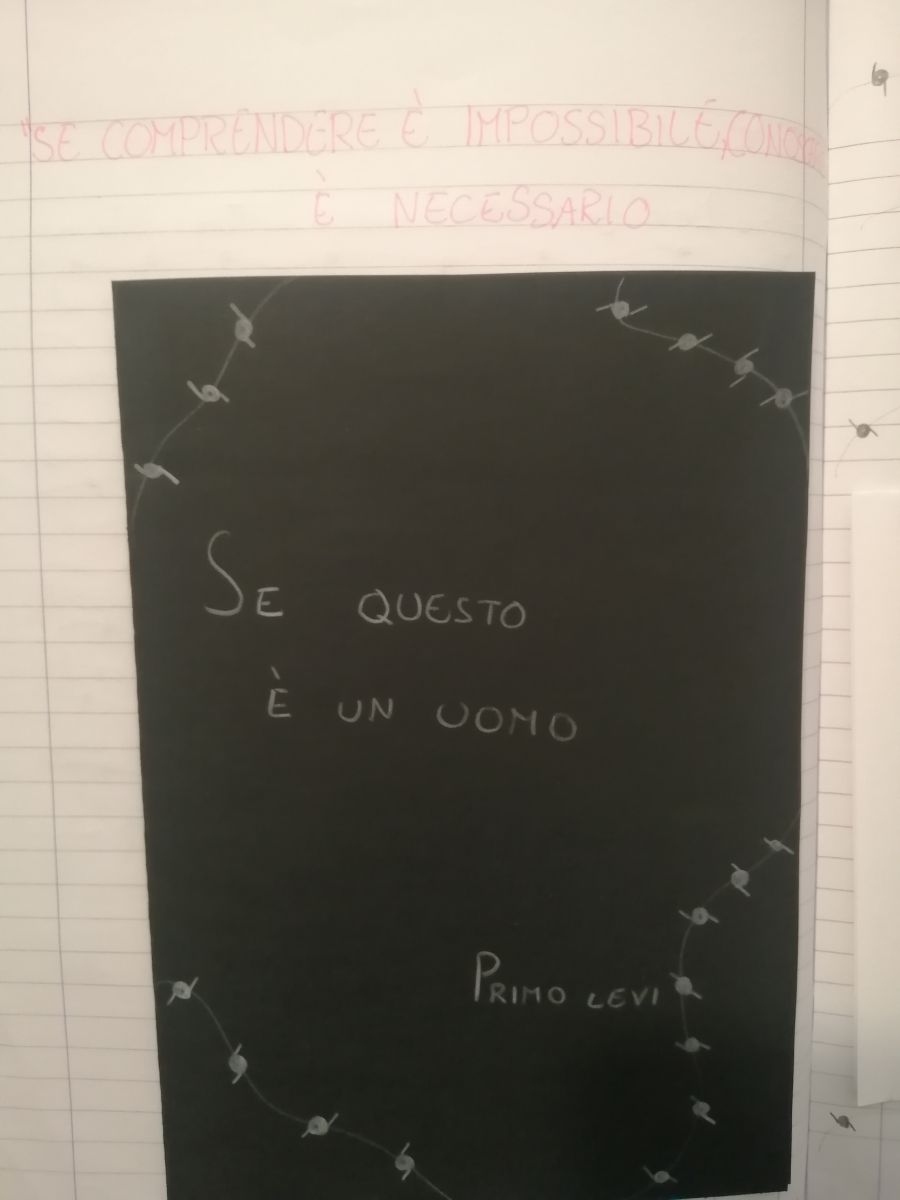 "SE COMPRENDERE È IMPOSSIBILE, CONOSCERE
È NECESSARIO
SE QUESTO
È UN UOMO
PRIMO LEVI